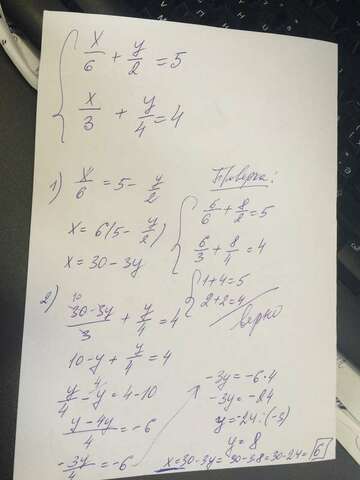 x/6 + y/2 = 5
x/3 + y/4 = 4
1) x/6 = 5 - y/2
x = 6(5 - y/2)
x = 30 - 3y
Проверка:
6/6 + 8/2 = 5
6/3 + 8/4 = 4
1+4=5
2+2=4
верно
2) 30-3y/3 + y/4 = 4
10
10 - y + y/4 = 4
y/4 - y = 4 - 10
4
y-4y/4 = -6
-3y/4 = -6
-3y = -6·4
-3y = -24
y = -24:(-3)
y = 8
x = 30 - 3y = 30 - 3·8 = 30 - 24 = 6